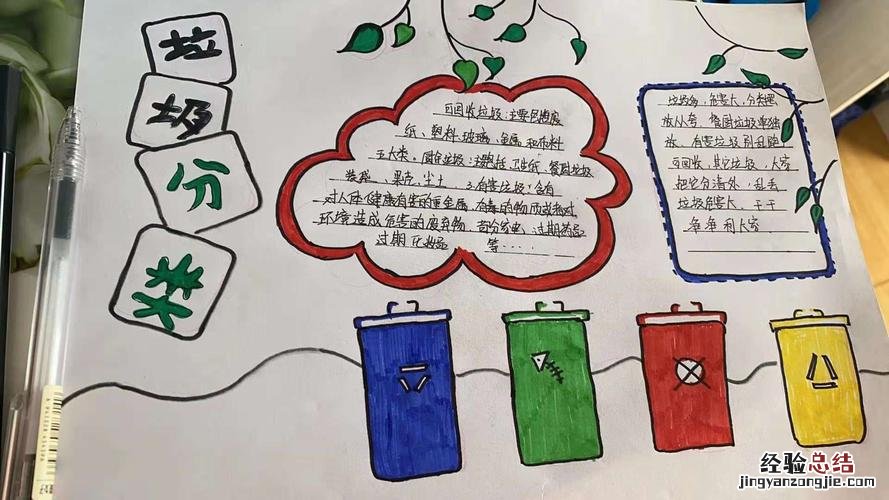 垃
圾
分
类
可回收垃圾:主要包括废
纸、塑料、玻璃、金属和布料
五大类。厨余垃圾:主要包括卫生纸、餐厨垃圾
果壳、尘土、3.有害垃圾:含有
对人体健康有害的重金属、有毒的物质或者对
环境造成危害的废弃物、过期药品
过期化妆品 等……
垃圾多,危害大,分类摆
餐厨垃圾单独
放,有害垃圾别乱跑
可回收,其它垃圾,大家
把它分清处,乱丢
垃圾危害大,干干
净净利大家
经验总结
jingyanzongjie.com